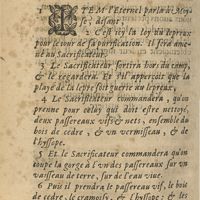 1 ITEM l'Eternel parla à Moy-
se, disant,
2 C'est icy la loy du lepreux
pour le iour de sa purification. Il sera ame-
né au Sacrificateur.
3 Le Sacrificateur sortira hors du camp,
& le regardera. Et s'il apperçoit que la
playe de la lepre soit guerie au lepreux,
4 Le Sacrificateur commandera, qu'on
prenne pour celuy qui doit estre nettoyé,
deux passereaux vifs & nets, ensemble du
bois de cedre, & un vermisseau, & de
l'hyssope.
5 Et le Sacrificateur commandera qu'on
coupe la gorge à l'un des passereaux sur un
vaisseau de terre, sur de l'eau viue.
6 Puis il prendra le passereau vif, le bois
de cedre, le cramoisy, & l'hyssope; & les